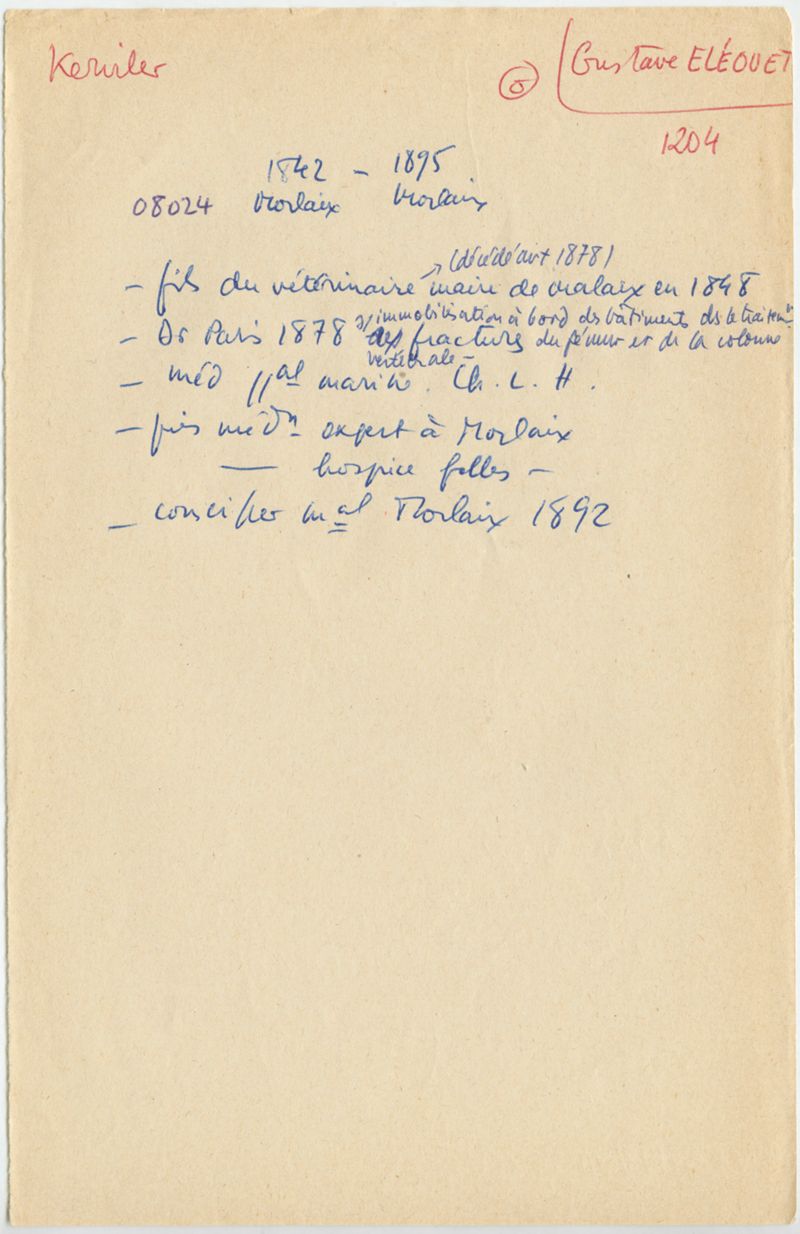 Kerviler
⑤ Gustave ELÉOUET
1204
1842 – 1895
08024 Morlaix Morlaix
(décédé avt 1878)
– fils du vétérinaire maire de Morlaix en 1848
s/ immobilisation à bord des bâtiments ds le traitemt
– Dr Paris 1878 des fractures du fémur et de la colonne
vertébrale –
– méd pal marine. Ch. L. H.
– puis médn expert à Morlaix
— hospice folles –
– conseiller mal Morlaix 1892